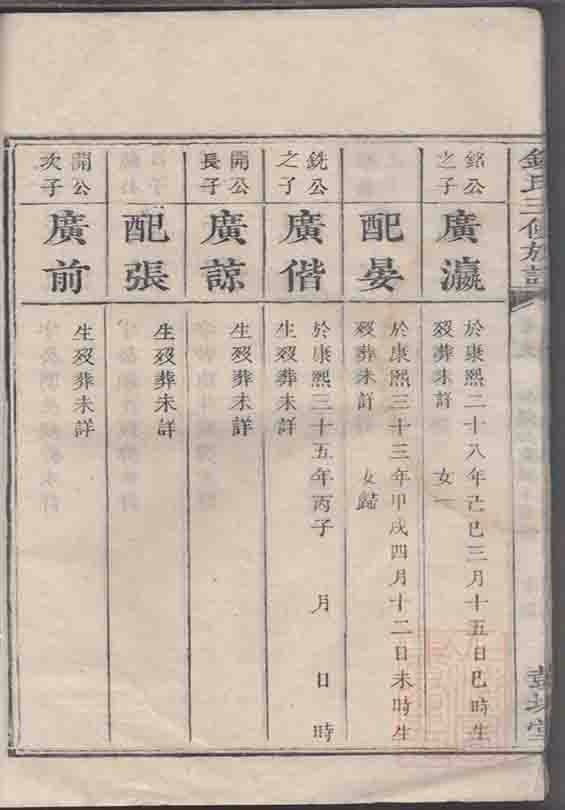 銘公
之子
廣瀛
於康熙二十八年己巳三月十五日巳時生
歿葬未詳 女一
配晏
於康熙三十三年甲戌四月十二日未時生
歿葬未詳 女歸
銑公
之子
廣偕
於康熙三十五年丙子 月 日 時
生歿葬未詳
開公
長子
廣諒
生歿葬未詳
配張
生歿葬未詳
開公
次子
廣前
生歿葬未詳
氏三修族譜
堂